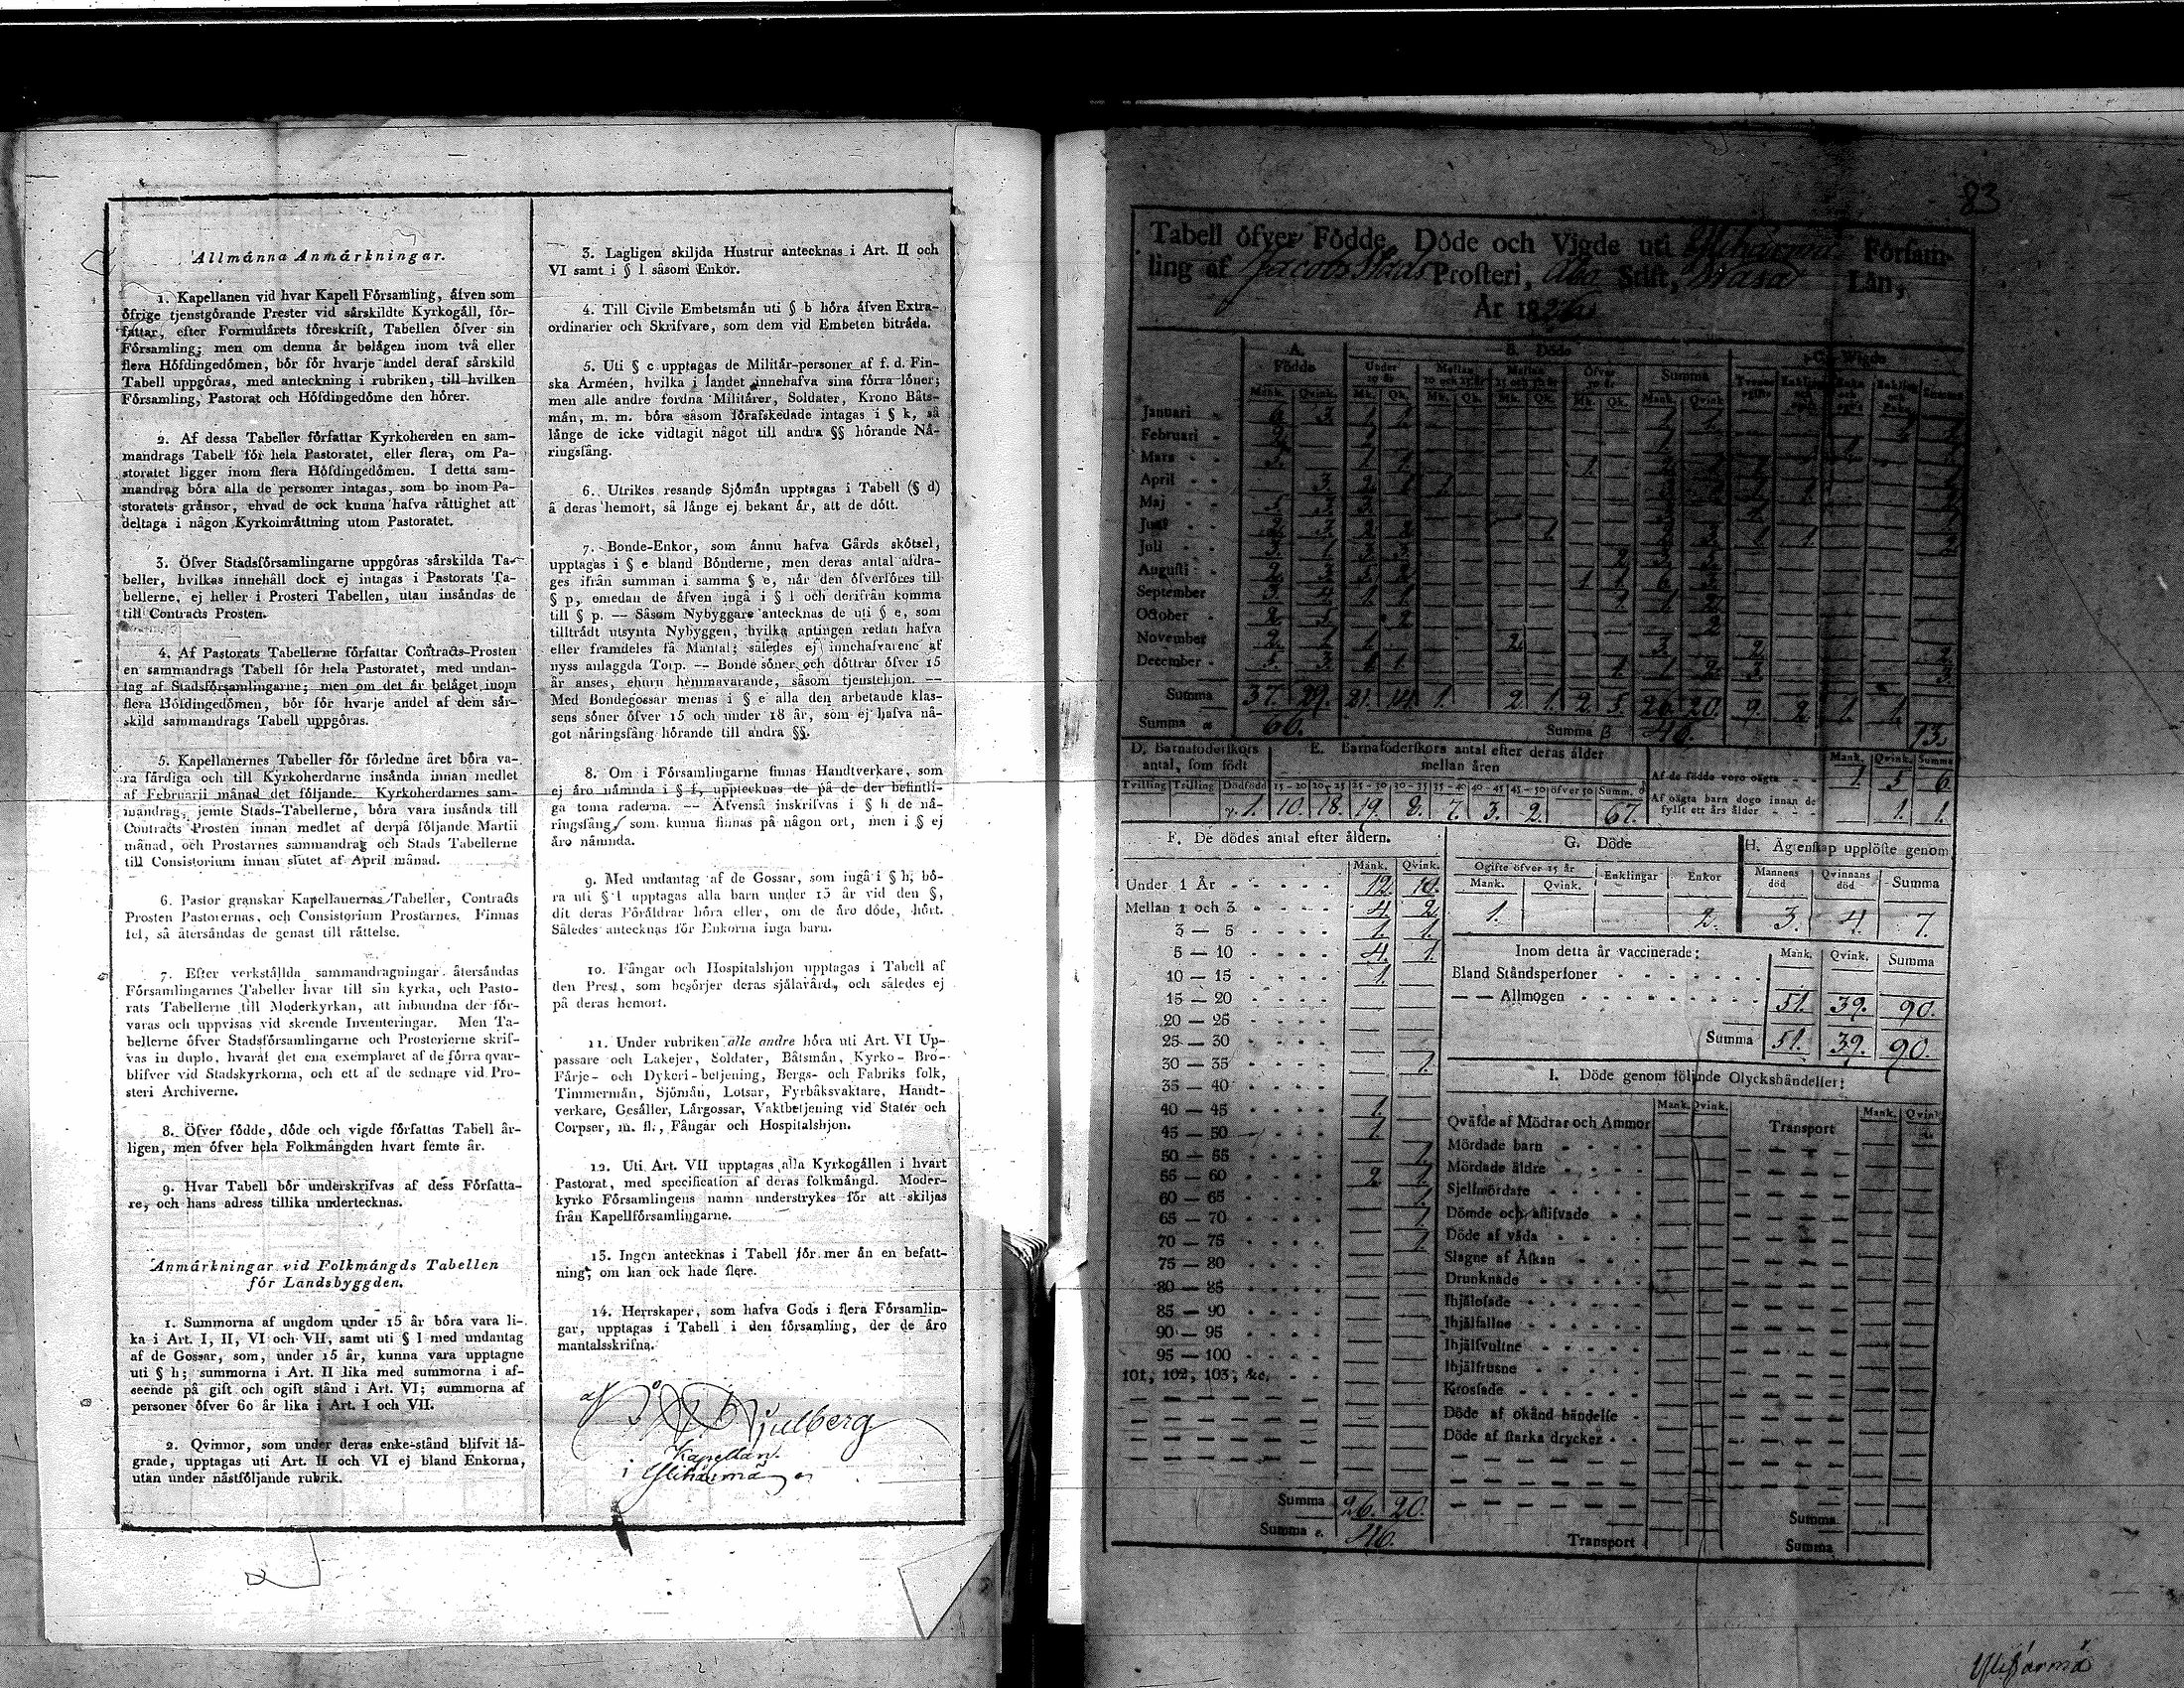 Allmánna Anmárkningar.
1. Kapellanen vid hvar Kapell Fórsamling, áfven som
ófrige tjenstgórande Prester vid sárskildte Kyrkogáll, fór-
fattar, efter Formulárets fóreskrift, Tabellen ófver sin
Fórsamling; men om denna ár belágen inom tvá eller
flera Hófdingedómen, bór fór hvarje andel deraf sárskild
Tabell uppgóras, med anteckning i rubriken, till hvilken
Fórsamling, Pastorat och Hófdingedóme den hórer.
2. Af dessa Tabeller fórfattar Kyrkoherden en sam-
mandrags Tabell fór hela Pastoratet, eller flera, om Pa-
storatet ligger inom flera Hófdingedómen. I detta sam-
mandrag bóra alla de personer intagas, som bo inom Pa-
storatets gránsor, ehvad de ock kunna hafva ráttighet att
deltaga i nágon Kyrkoinráttning utom Pastoratet.
3. Öfver Stadsfórsamlingarne uppgóras sárskilda Ta-
beller, hvilkas innehåll dock ej intagas i Pastorats Ta-
bellerne, ej heller i Prosteri Tabellen, utan insåndas de
till Contracts Prosten.
4. Af Pastorats Tabellerne fórfattar Contracts-Prosten
en sammandrags Tabell fór hela Pastoratet, med undan-
tag af Stadsfórsamlingarne; men om det ár beláget inom
flera Hófdingedómen, bór fór hvarje andel af dem sár-
skild sammandrags Tabell uppgóras.
5. Kapellanernes Tabeller fór fórledne året bóra va-
ra fárdiga och till Kyrkoherdarne insánda innan medlet
af Februarii månad det fóljande. Kyrkoherdarnes sam-
mandrag, jemte Stads-Tabellerne, bóra vara insánda till
Contracts Prosten innan medlet af derpå fóljande Martii
månad, och Prostarnes sammandrag och Stads Tabellerne
till Consistorium innan slutet af April månad.
6. Pastor granskar Kapellanernas Tabeller, Contracts
Prosten Pastorernas, och Consistorium Prostarnes. Finnas
fel, så återsándas de genast till ráttelse.
7. Efter verkstállda sammandragningar återsándas
Fórsamlingarnes Tabeller hvar till sin kyrka, och Pasto-
rats Tabellerne till Moderkyrkan, att inbundna der fór-
varas och uppvisas vid skeende Inventeringar. Men Ta-
bellerne ófver Stadsfórsamlingarne och Prosterierne skrif-
vas in duplo, hvaraf det ena exemplaret af de fórra qvar-
blifver vid Stadskyrkorna, och ett af de sednare vid Pro-
steri Archiverne.
8. Öfver fódde, dóde och vigde fórfattas Tabell år-
ligen, men ófver hela Folkmángden hvart femte år.
9. Hvar Tabell bór underskrifvas af dess Fórfatta-
re, och hans adress tillika undertecknas.
Anmárkningar vid Folkmángds Tabellen
fór Landsbyggden.
1. Summorna af ungdom under 15 år bóra vara li-
ka i Art. I, II, VI och VII, samt uti § l med undantag
af de Gossar, som, under 15 år, kunna vara upptagne
uti § h; summorna i Art. II lika med summorna i af-
seende på gift och ogift stånd i Art. VI; summorna af
personer ófver 60 år lika i Art. I och VII.
2. Qvinnor, som under deras enke-stånd blifvit lá-
grade, upptagas uti Art. II och VI ej bland Enkorna,
utan under nástfóljande rubrik.
3. Lagligen skiljda Hustrur antecknas i Art. II och
VI samt i § l såsom Enkor.
4. Till Civile Embetsmán uti § b hóra áfven Extra-
ordinarier och Skrifvare, som dem vid Embeten bitráda.
5. Uti § c upptagas de Militár-personer af f. d. Fin-
ska Arméen, hvilka i landet innehafva sina fórra lóner;
men alle andre fordna Militárer, Soldater, Krono Båts-
mán, m. m. bóra såsom fórafskedade intagas i § k, så
lánge de icke vidtagit något till andra §§ hórande Ná-
ringsfång.
6. Utrikes resande Sjómán upptagas i Tabell (§ d)
å deras hemort, så lánge ej bekant ár, att de dótt.
7. Bonde-Enkor, som ánnu hafva Gårds skótsel,
upptagas i § e bland Bónderne, men deras antal afdra-
ges ifrån summan i samma § e, nár den ófverfóres till
§ p, emedan de áfven ingå i § l och derifrån komma
till § p. — Såsom Nybyggare antecknas de uti § e, som
tilltrádt utsynta Nybyggen, hvilka antingen redan hafva
eller framdeles få Mantal; således ej innehafvarene af
nyss anlaggda Torp. — Bonde sóner och dóttrar ófver 15
år anses, ehuru hemmavarande, såsom tjenstehjon. —
Med Bondegossar menas i § e alla den arbetande klas-
sens sóner ófver 15 och under 18 år, som ej hafva nå-
got náringsfång hórande till andra §§.
8. Om i Fórsamlingarne finnas Handtverkare, som
ej áro námnda i § f, upptecknas de på de der befintli-
ga toma raderna. — Áfvenså inskrifvas i § h de ná-
ringsfång, som kunna finnas på någon ort, men i § ej
áro námnda.
9. Med undantag af de Gossar, som ingå i § h, bó-
ra uti § l upptagas alla barn under 15 år vid den §,
dit deras Fóráldrar hóra eller, om de áro dóde, hórt.
Således antecknas fór Enkorna inga barn.
10. Fångar och Hospitalshjon upptagas i Tabell af
den Prest, som besórjer deras sjålavård, och således ej
på deras hemort.
11. Under rubriken alle andre hóra uti Art. VI Up-
passare och Lakejer, Soldater, Båtsmán, Kyrko- Bro-
Fárje- och Dykeri-betjening, Bergs- och Fabriks folk,
Timmermán, Sjómán, Lotsar, Fyrbåksvaktare, Handt-
verkare, Gesáller, Lárgossar, Vaktbetjening vid Stater och
Corpser, m. fl., Fångar och Hospitalshjon.
12. Uti Art. VII upptagas alla Kyrkogállen i hvart
Pastorat, med specification af deras folkmángd. Moder-
kyrko Fórsamlingens namn understrykes fór att skiljas
från Kapellfórsamlingarne.
13. Ingen antecknas i Tabell fór mer án en befatt-
ning, om han ock hade flere.
14. Herrskaper, som hafva Gods i flera Fórsamlin-
gar, upptagas i Tabell i den fórsamling, der de áro
mantalsskrifna.
Kapellan
i Ylihärmä
83
Tabell ófver Fódde, Dóde och Vigde uti Ylihärmä Fórsam-
ling af Jacobs Stads Prosteri, Åbo Stift, Wasa Lán,
År 18
A. Fódde B. Dóde C. Wigde
Under 10 år Mellan 10 och 25 år Mellan 25 och 50 år Öfver 50 år Summa
Januari
Februari
Mars
April
Maj
Juni
Juli
Augusti
September
October
November
December
Summa 37. 29. 21. 14. 1. 2. 1. 2. 5. 26. 20. 9. 2. 1. 1.
Summa 66. Summa β 46. 13.
D. Barnafóderskors antal, som fódt
E. Barnafóderskors antal efter deras ålder mellan åren
Mank. Qvink. Summa
Tvilling Trilling Dódfódd 15-20 20-25 25-30 30-35 35-40 40-45 45-50 ófver 50 Summ.
1. 10. 18. 19. 8. 7. 3. 2. 67.
Af de fódde voro oägta 1. 5. 6.
Af oägta barn dogo innan de fyllt ett års ålder 1. 1.
F. De dódes antal efter åldern.
Mank. Qvink.
Under 1 År 12. 10.
Mellan 1 och 3 4. 2.
3 — 5 1. 1.
5 — 10 4. 1.
10 — 15 1.
15 — 20
20 — 25
25 — 30
30 — 35 1.
35 — 40
40 — 45 1.
45 — 50 1.
50 — 55 1.
55 — 60 2. 1.
60 — 65 1.
65 — 70 1.
70 — 75 1.
75 — 80
80 — 85
85 — 90
90 — 95
95 — 100
101, 102, 103, &c.
Summa 26. 20.
Summa 46.
G. Dóde
Ogifte ófver 15 år Enklingar Enkor
Mank. Qvink.
1. 2.
H. Ägtenskap upplóste genom
Mannens dód Qvinnans dód Summa
3. 4. 7.
Inom detta år vaccinerade: Mank. Qvink. Summa
Bland Ståndspersoner
— — Allmogen 51. 39. 90.
Summa 51. 39. 90.
I. Dóde genom fóljande Olyckshándelser:
Mank. Qvink. Mank. Qvink.
Qváfde af Módrar och Ammor Transport
Mórdade barn
Mórdade áldre
Sjelfmórdare
Dómde och aflifvade
Dóde af våda
Slagne af Åskan
Drunknade
Ihjálosade
Ihjálfallne
Ihjálfrusne
Krossade
Dóde af okánd hándelse
Dóde af starka drycker
Summa
Transport Summa
Ylihärmä